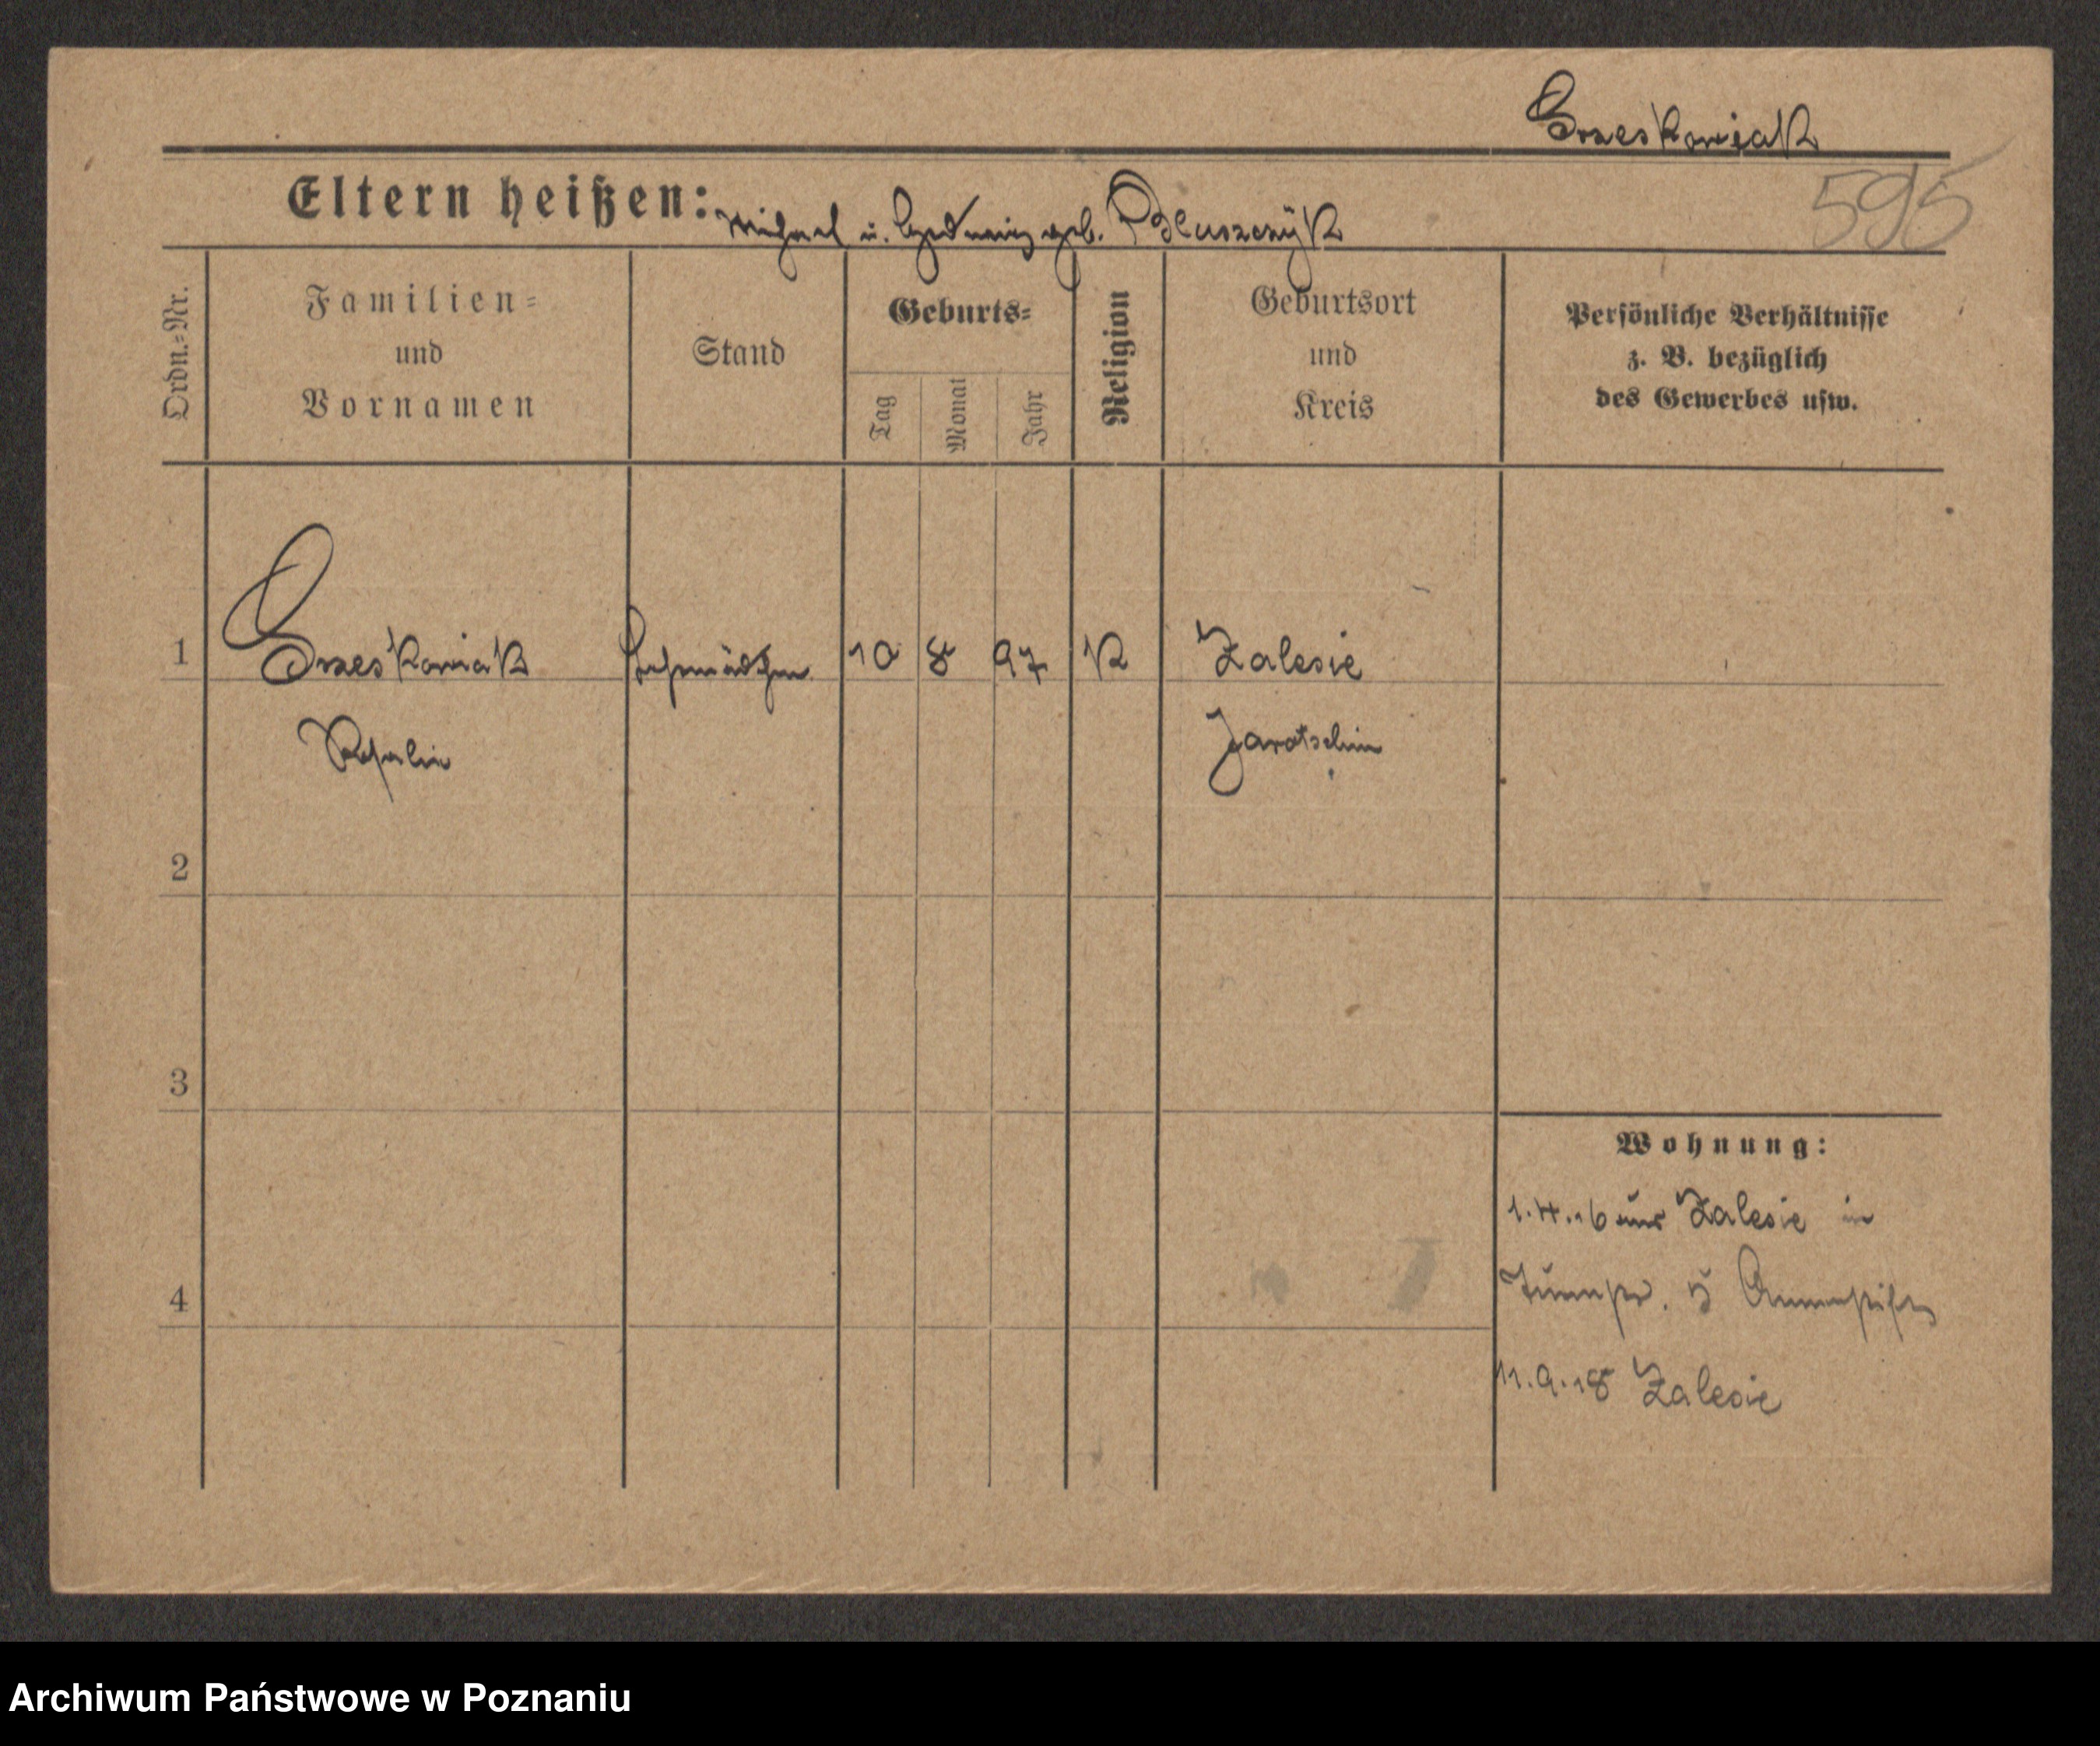 Grzeskowiak
595
Eltern heißen: Michael u. Hedwig geb. Pdluszczÿk
Ordn.=Nr.
Familien=
und
Vornamen
Stand
Geburts=
Tag
Monat
Jahr
Religion
Geburtsort
und
Kreis
Persönliche Verhältnisse
z. B. bezüglich
des Gewerbes usw.
1 Grzeskowiak 10 8 97 K Zalesie
Rosalie Jarotschin
2
3
4
Wohnung:
1.4.16 aus Zalesie in
5 Annenstift
11.9.18 Zalesie
Archiwum Państwowe w Poznaniu